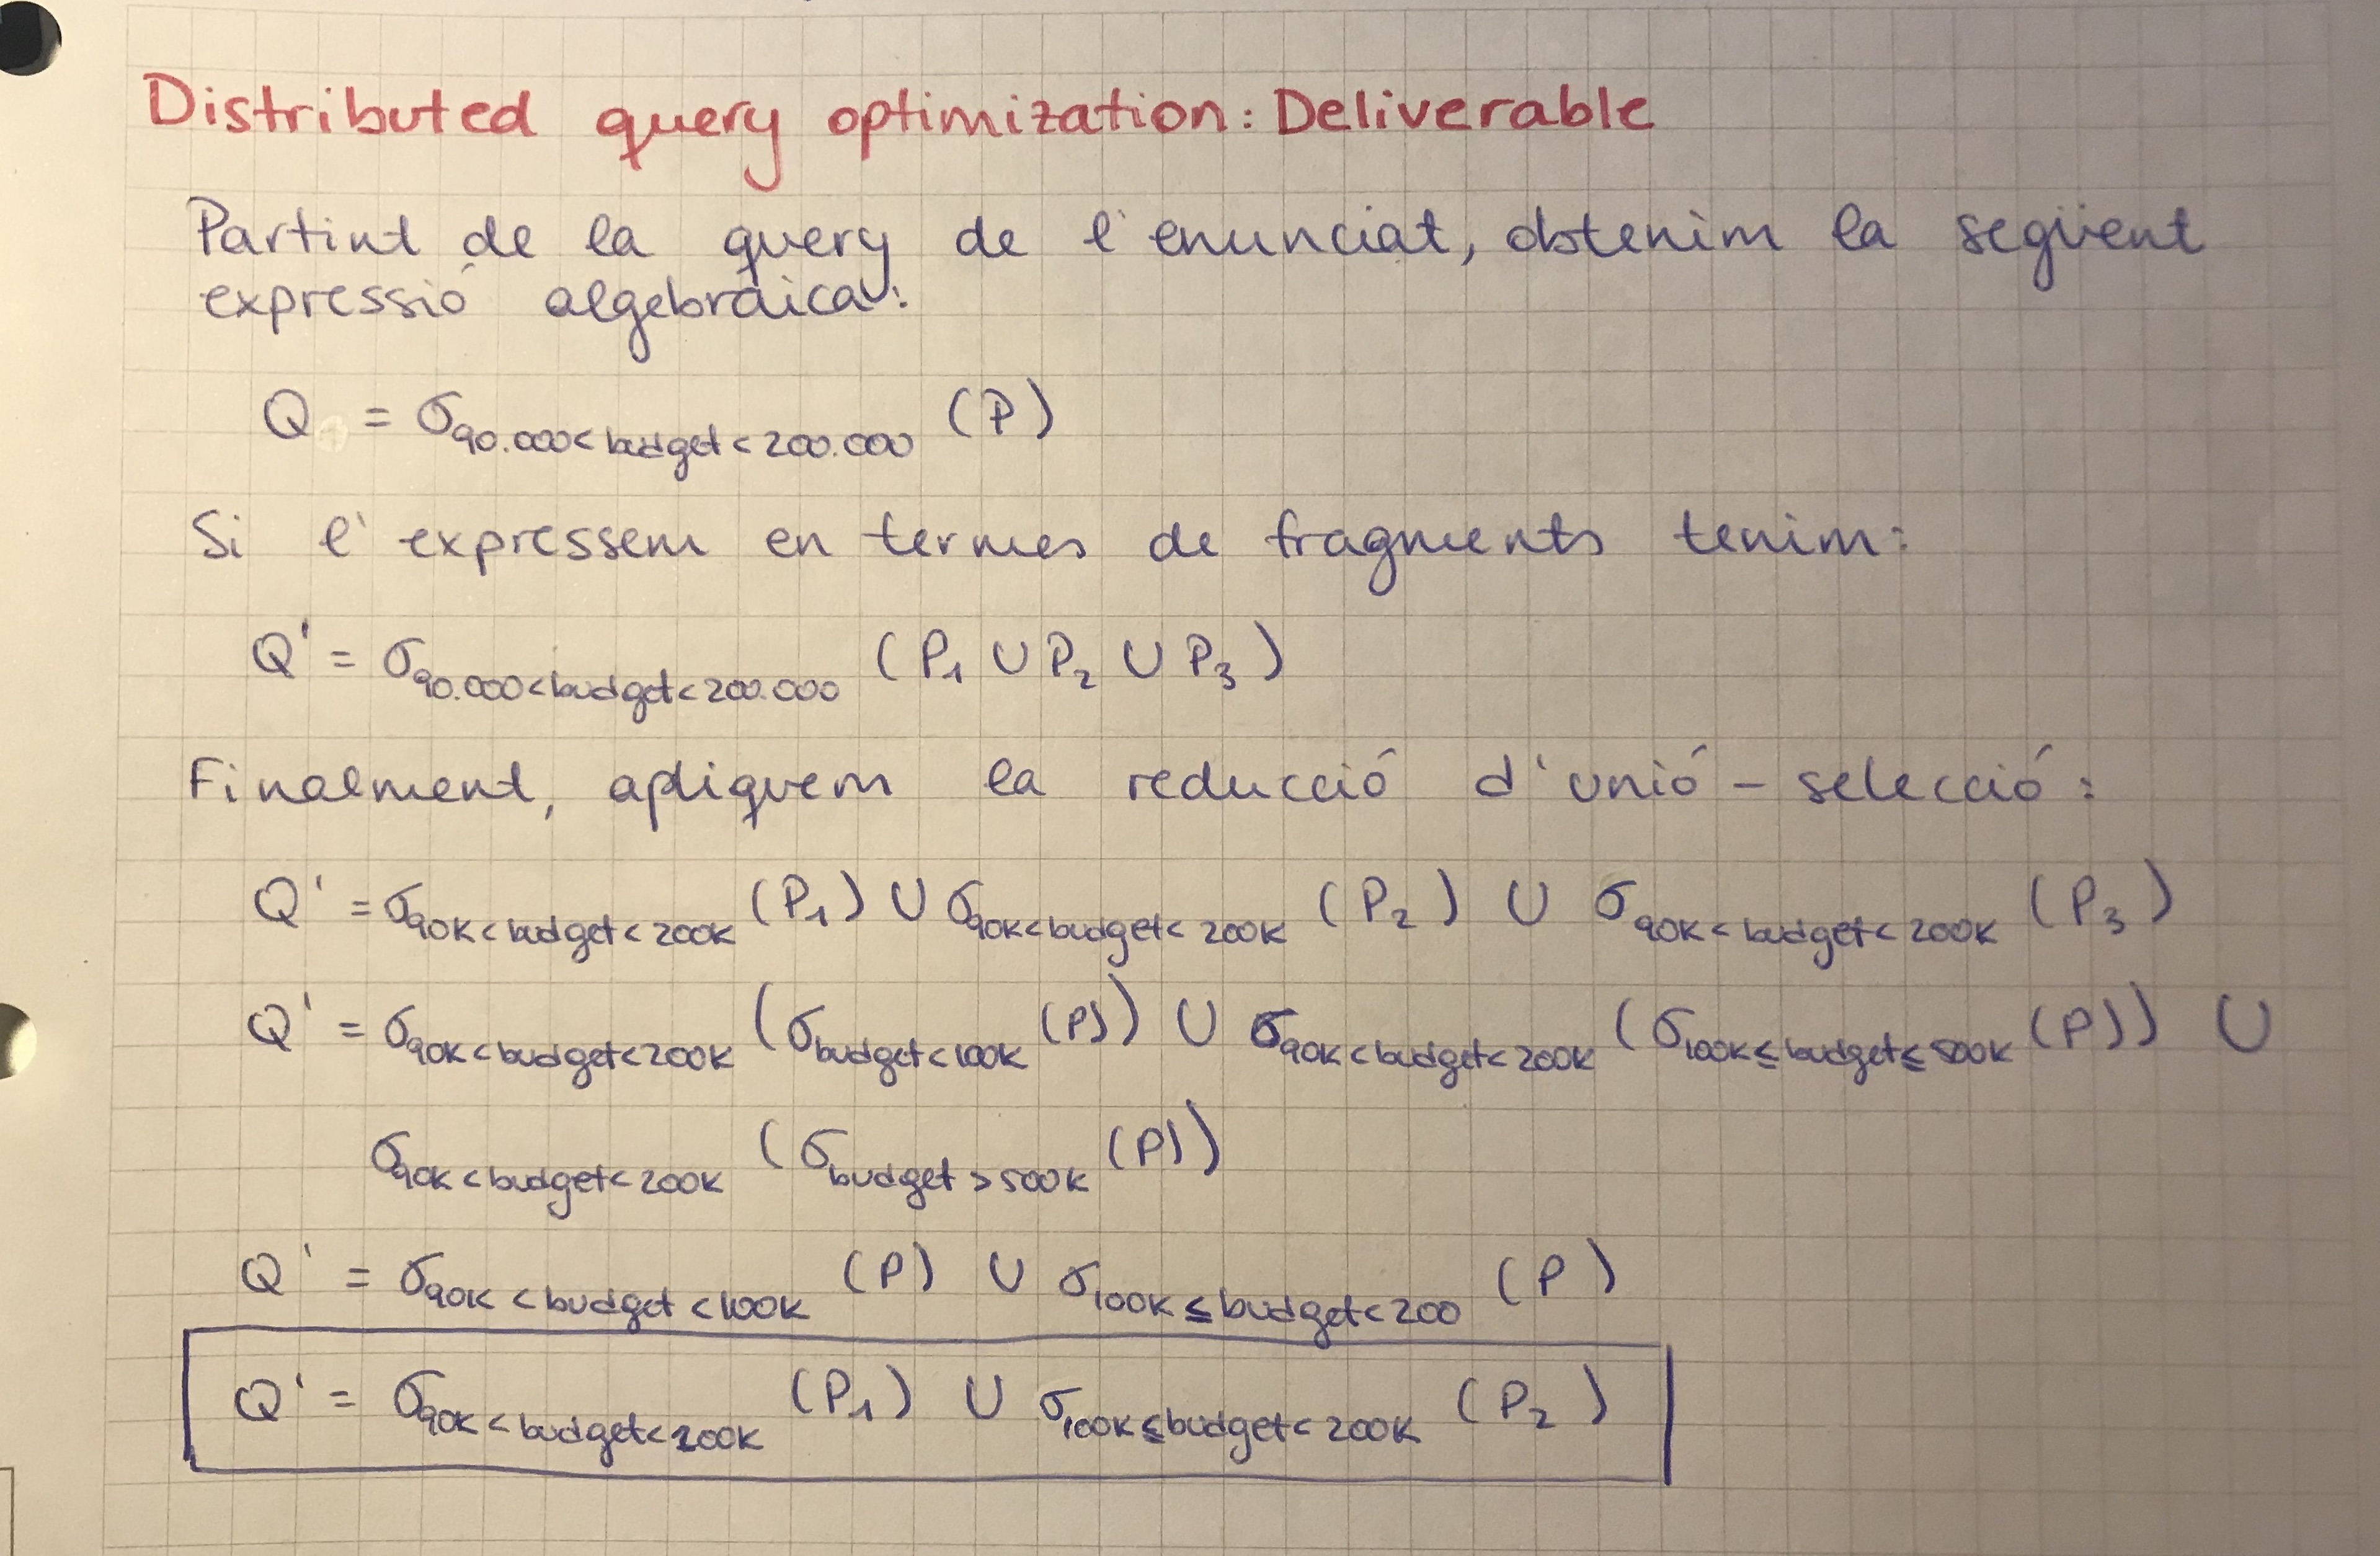 Distributed query optimization: Deliverable
Partint de la query de l'enunciat, obtenim la següent
expressió algebràica:
Q = σ90.000<budget<200.000 (P)
Si l'expressem en termes de fragments tenim:
Q' = σ90.000<budget<200.000 (P1 ∪ P2 ∪ P3)
Finalment, apliquem la reducció d'unió - selecció:
Q' = σ90K<budget<200K (P1) ∪ σ90K<budget<200K (P2) ∪ σ90K<budget<200K (P3)
Q' = σ90K<budget<200K (σbudget<100K (P)) ∪ σ90K<budget<200K (σ100K≤budget≤500K (P)) ∪
σ90K<budget<200K (σbudget>500K (P))
Q' = σ90K<budget<100K (P) ∪ σ100K≤budget<200 (P)
Q' = σ90K<budget<200K (P1) ∪ σ100K≤budget<200K (P2)